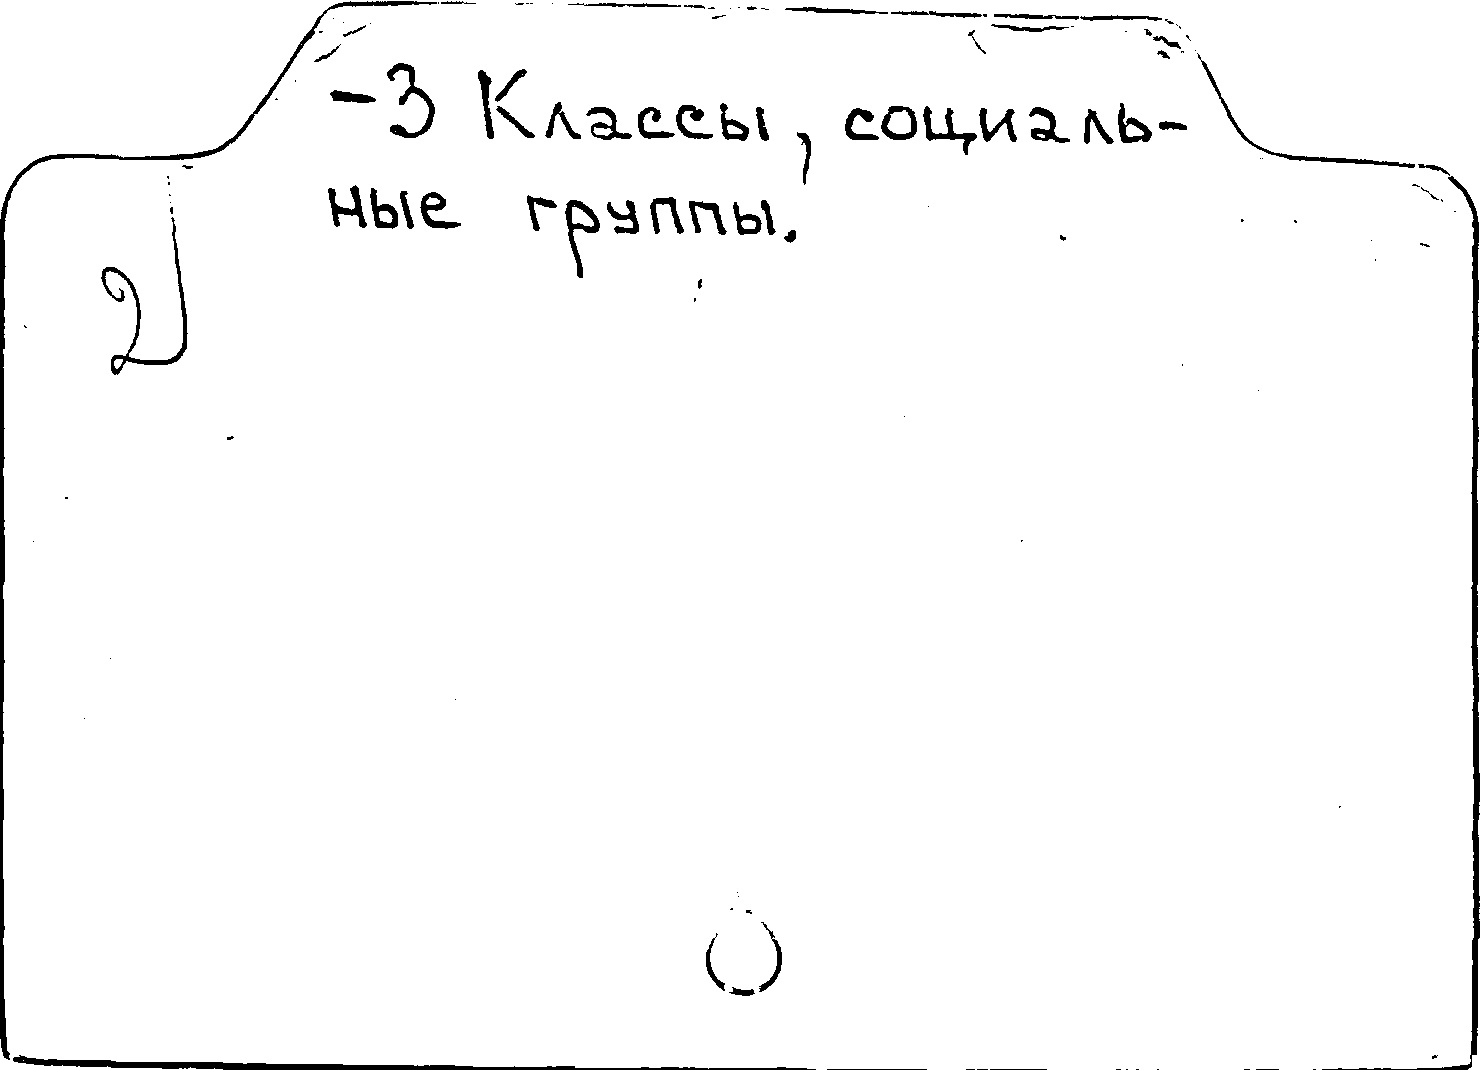 -3 Классы, социаль-
ные группы.
2